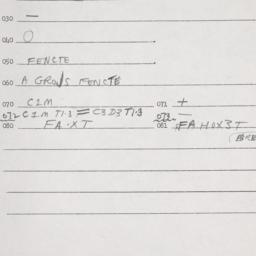 030 —
040 O
050 FENCTE
060 A GROVS FENCTE
070 C1M 071 +
072 C1M T1.1 = C3D3T1.3 072 —
080 FA.XT 081 FAHOX3T